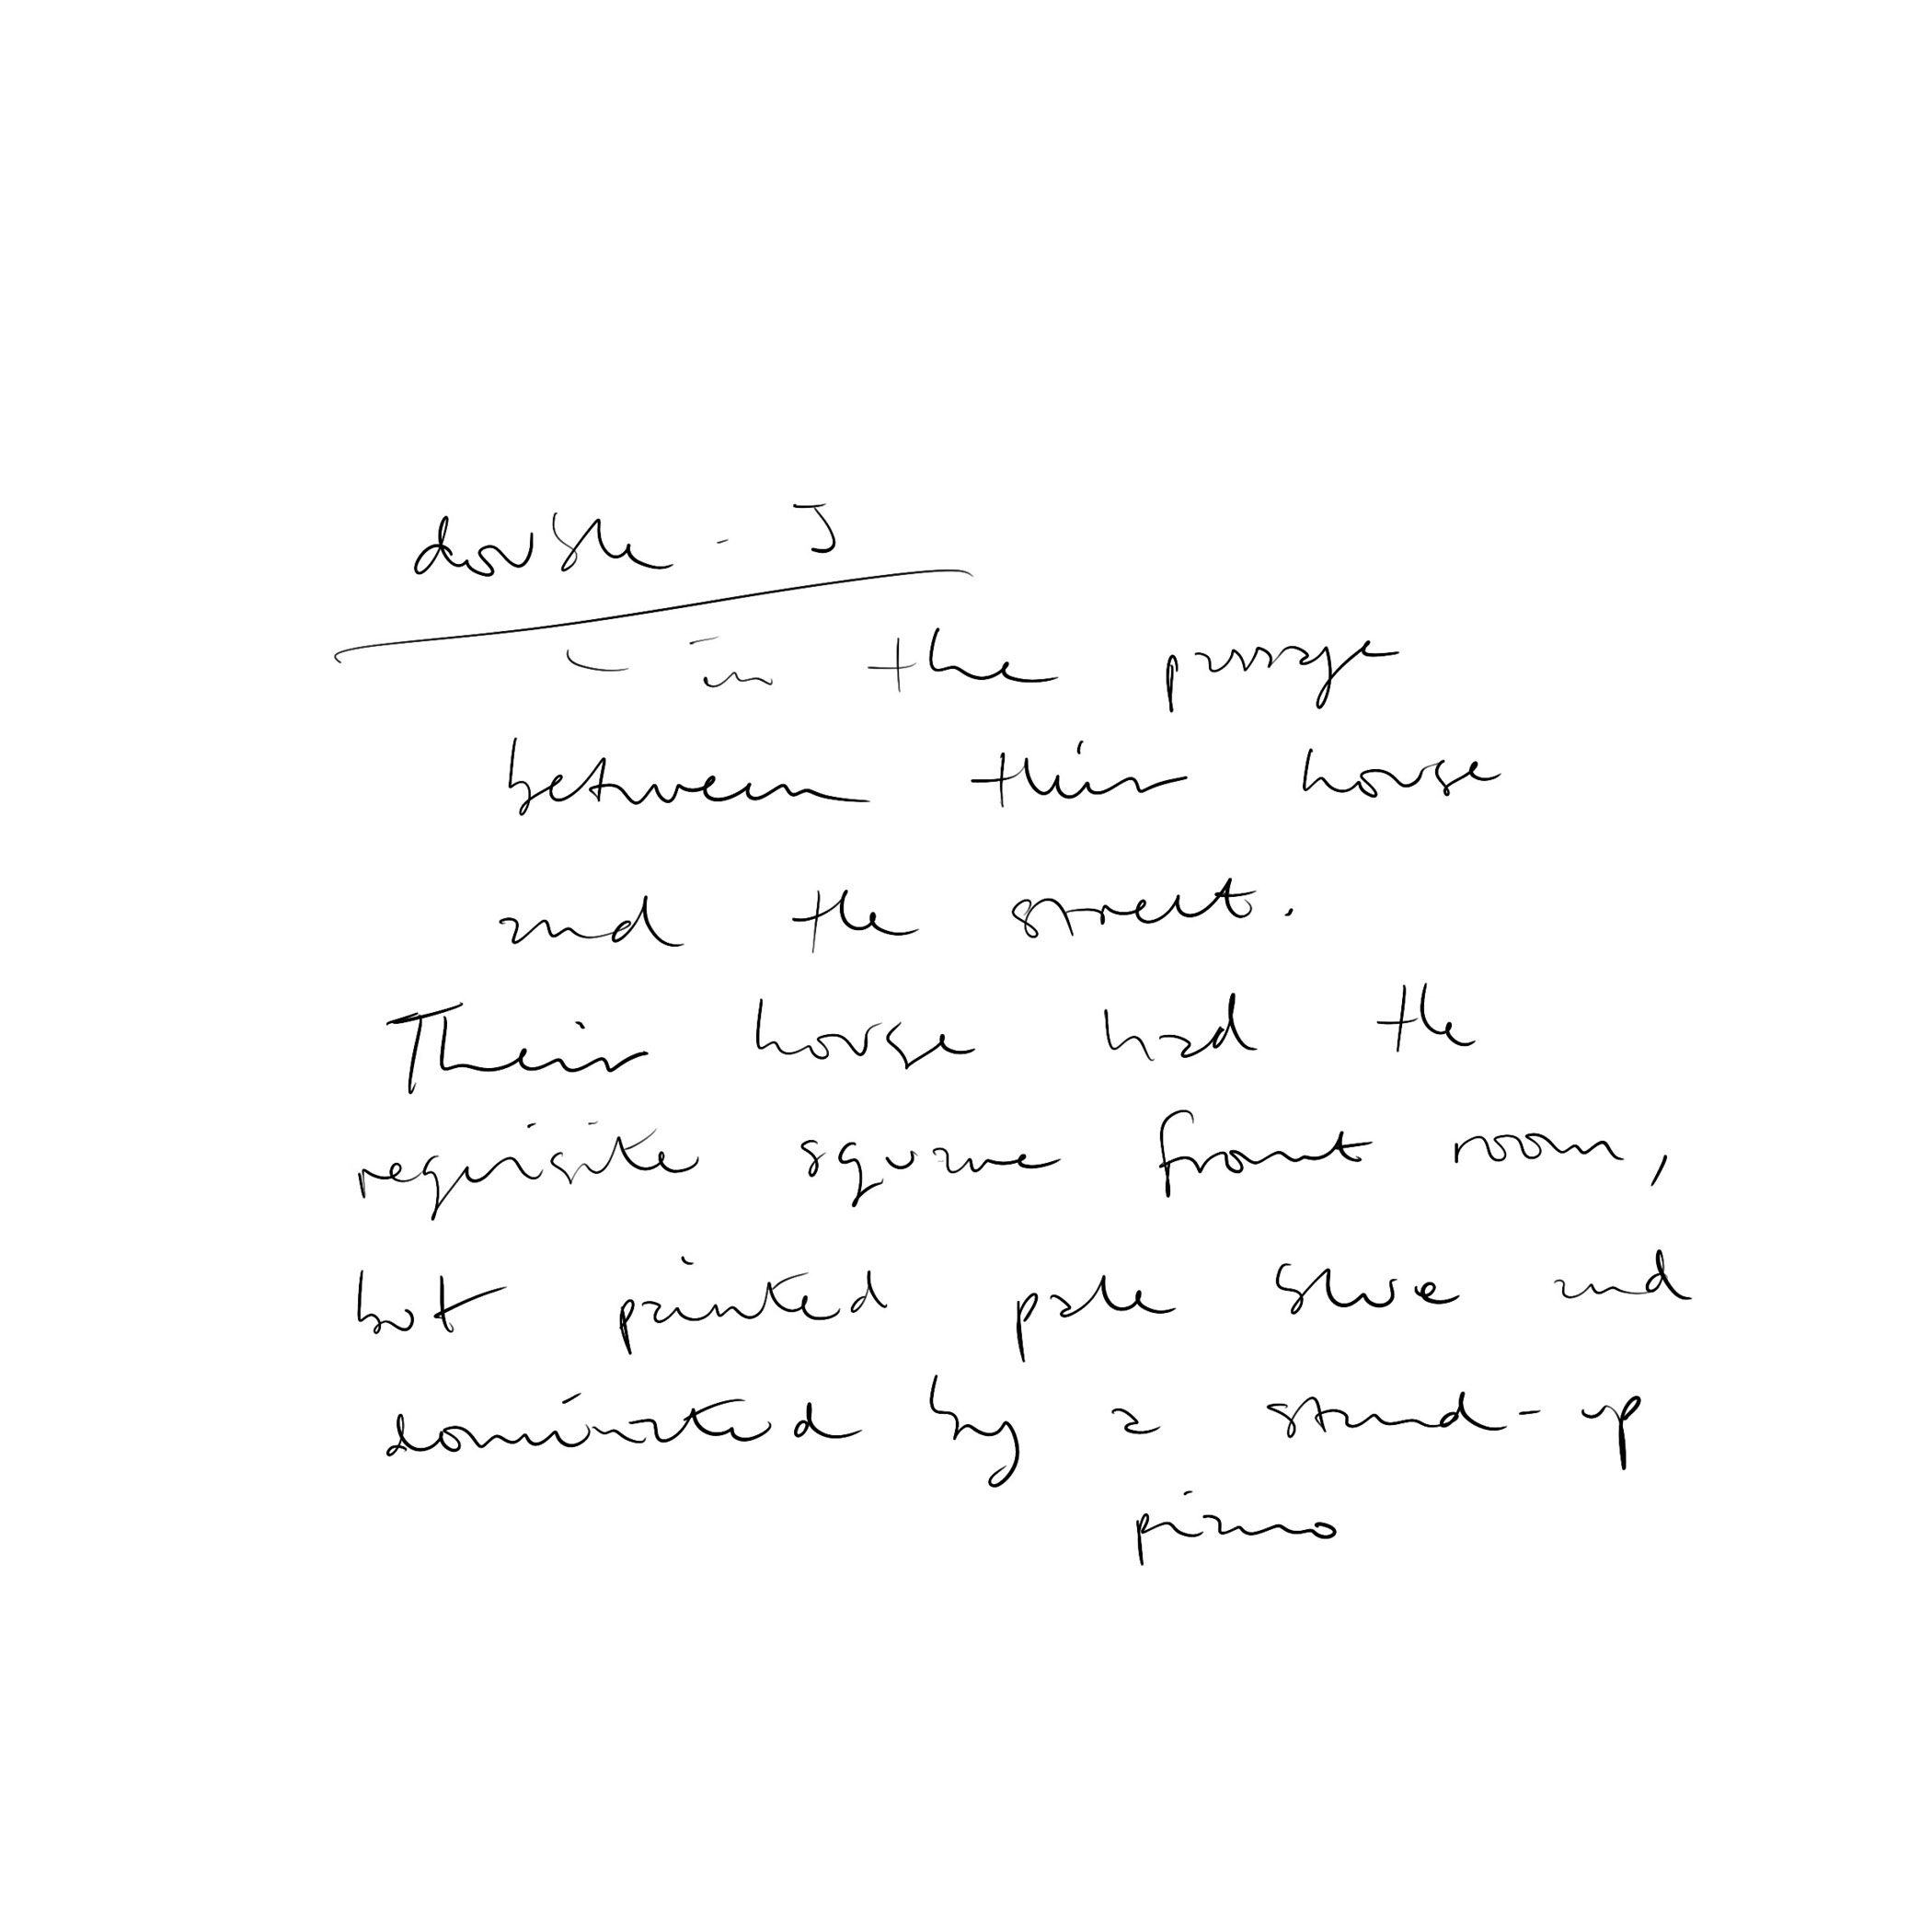 double - J
- in the passage
between their house
and the street.
Their house had the
requisite square front room,
but painted pale blue and
dominated by a stand-up
piano